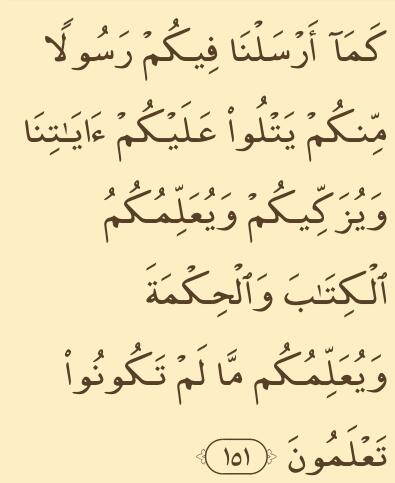 كَمَآ أَرْسَلْنَا فِيكُمْ رَسُولًا
مِّنكُمْ يَتْلُوا۟ عَلَيْكُمْ ءَايَـٰتِنَا
وَيُزَكِّيكُمْ وَيُعَلِّمُكُمُ
ٱلْكِتَـٰبَ وَٱلْحِكْمَةَ
وَيُعَلِّمُكُم مَّا لَمْ تَكُونُوا۟
تَعْلَمُونَ ١٥١